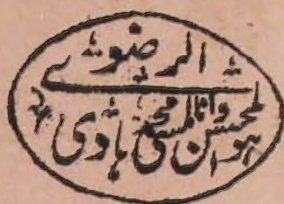 الرضوی
هو المحسن وانا المسمی محمد هادی